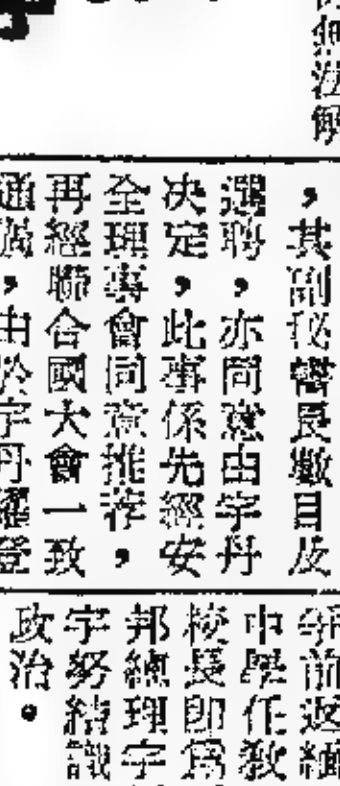 無法解
，其副秘書長數目及
選聘，亦同意由宇丹
决定，此事係先經安
全理事會同意推荐，
再經聯合國大會一致
通過，由於宇丹
登
年前返緬
中學任教
校長即為
邦總理宇
宇努結識
政治。